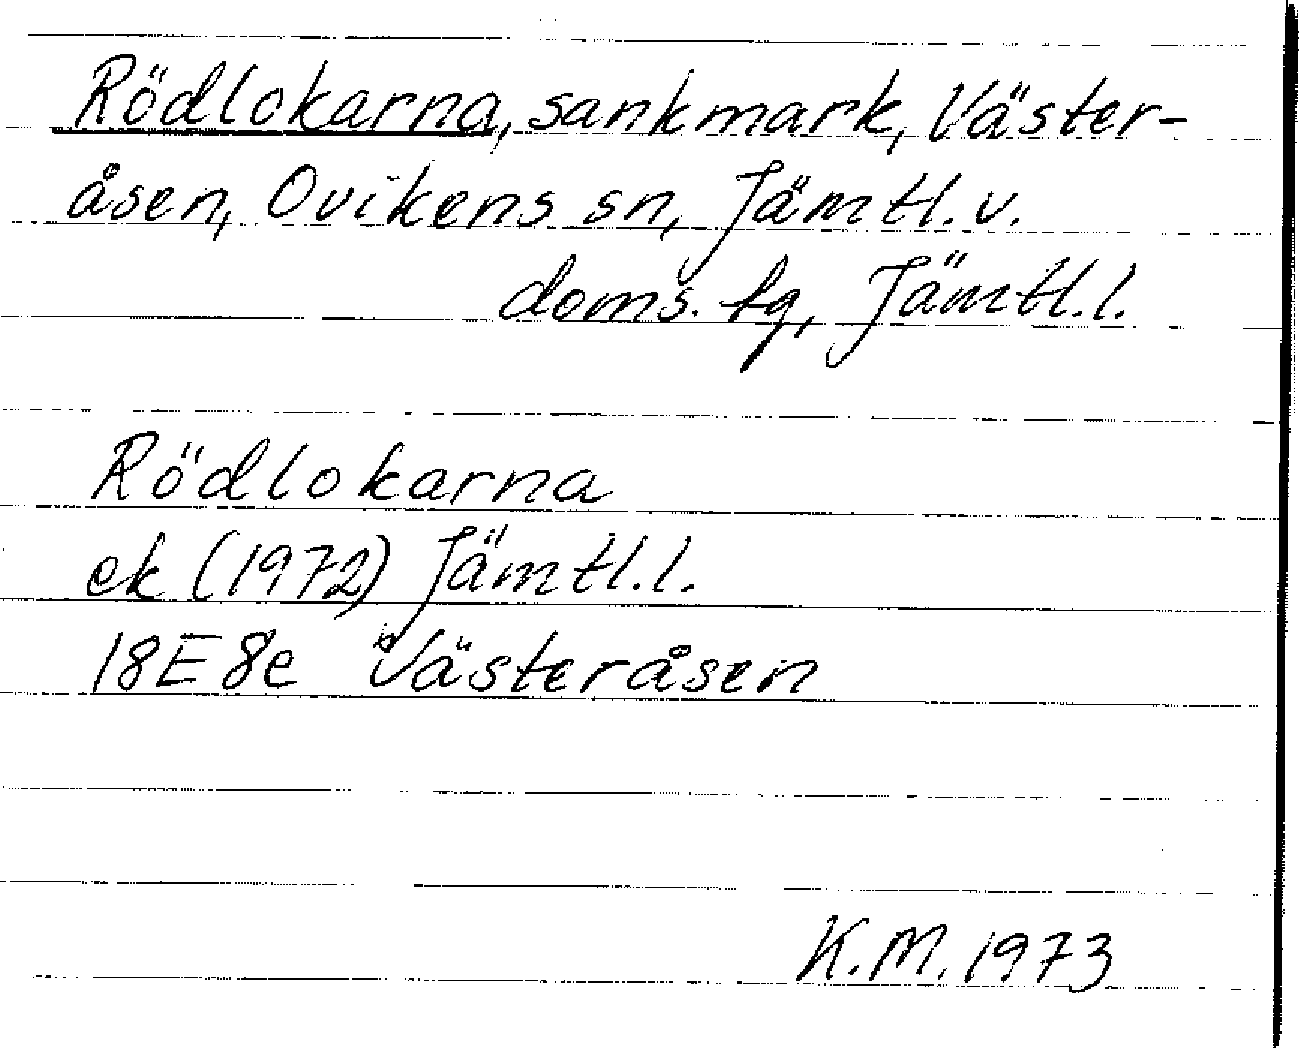 Rödlokarna, sankmark, Väster-
åsen, Ovikens sn, Jämtl. v.
doms. fg, Jämtl. l.
Rödlokarna
ek (1972) Jämtl. l.
18E8e Västeråsen
K.M. 1973